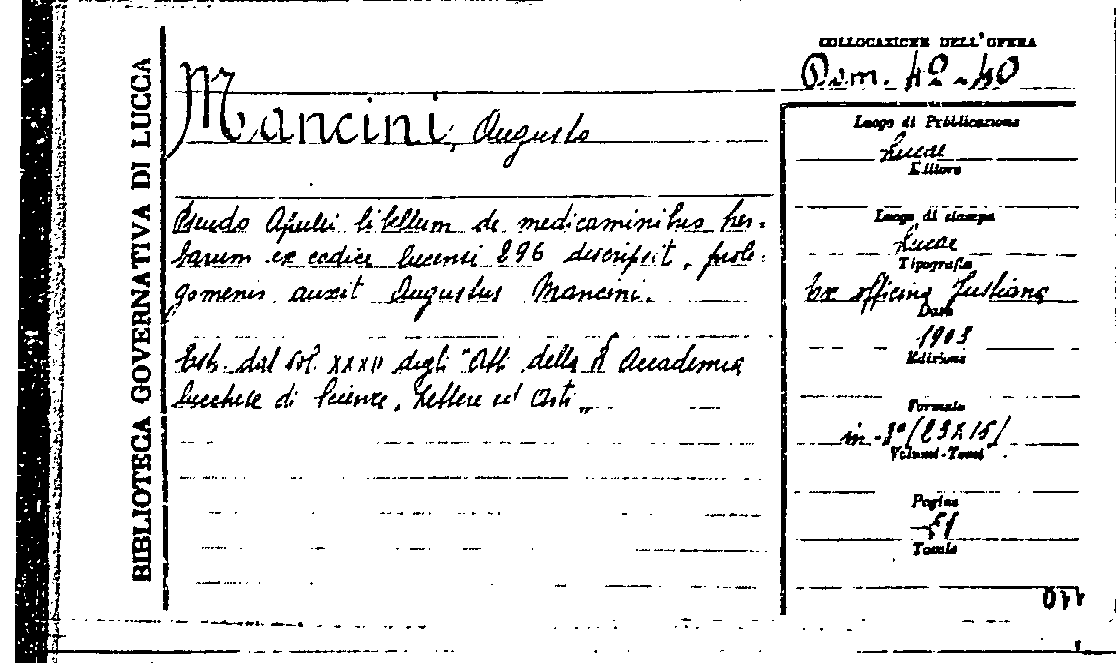 BIBLIOTECA GOVERNATIVA DI LUCCA
Mancini, Augusto
Pseudo Apulei libellum de medicaminibus her-
barum ex codice lucensi 296 descripsit, prole-
gomenis auxit Augustus Mancini.
Estr. dal vol. XXXII degli "Atti della R. Accademia
lucchese di Scienze, Lettere ed Arti"
COLLOCAZIONE DELL'OPERA
42-40
Luogo di Pubblicazione
Lucae
Editore
Luogo di stampa
Lucae
Tipografia
Ex officina Justiana
Data
1903
Edizione
Formato
in-8° (23X15)
Volumi-Tomi
Pagine
51
Tomie